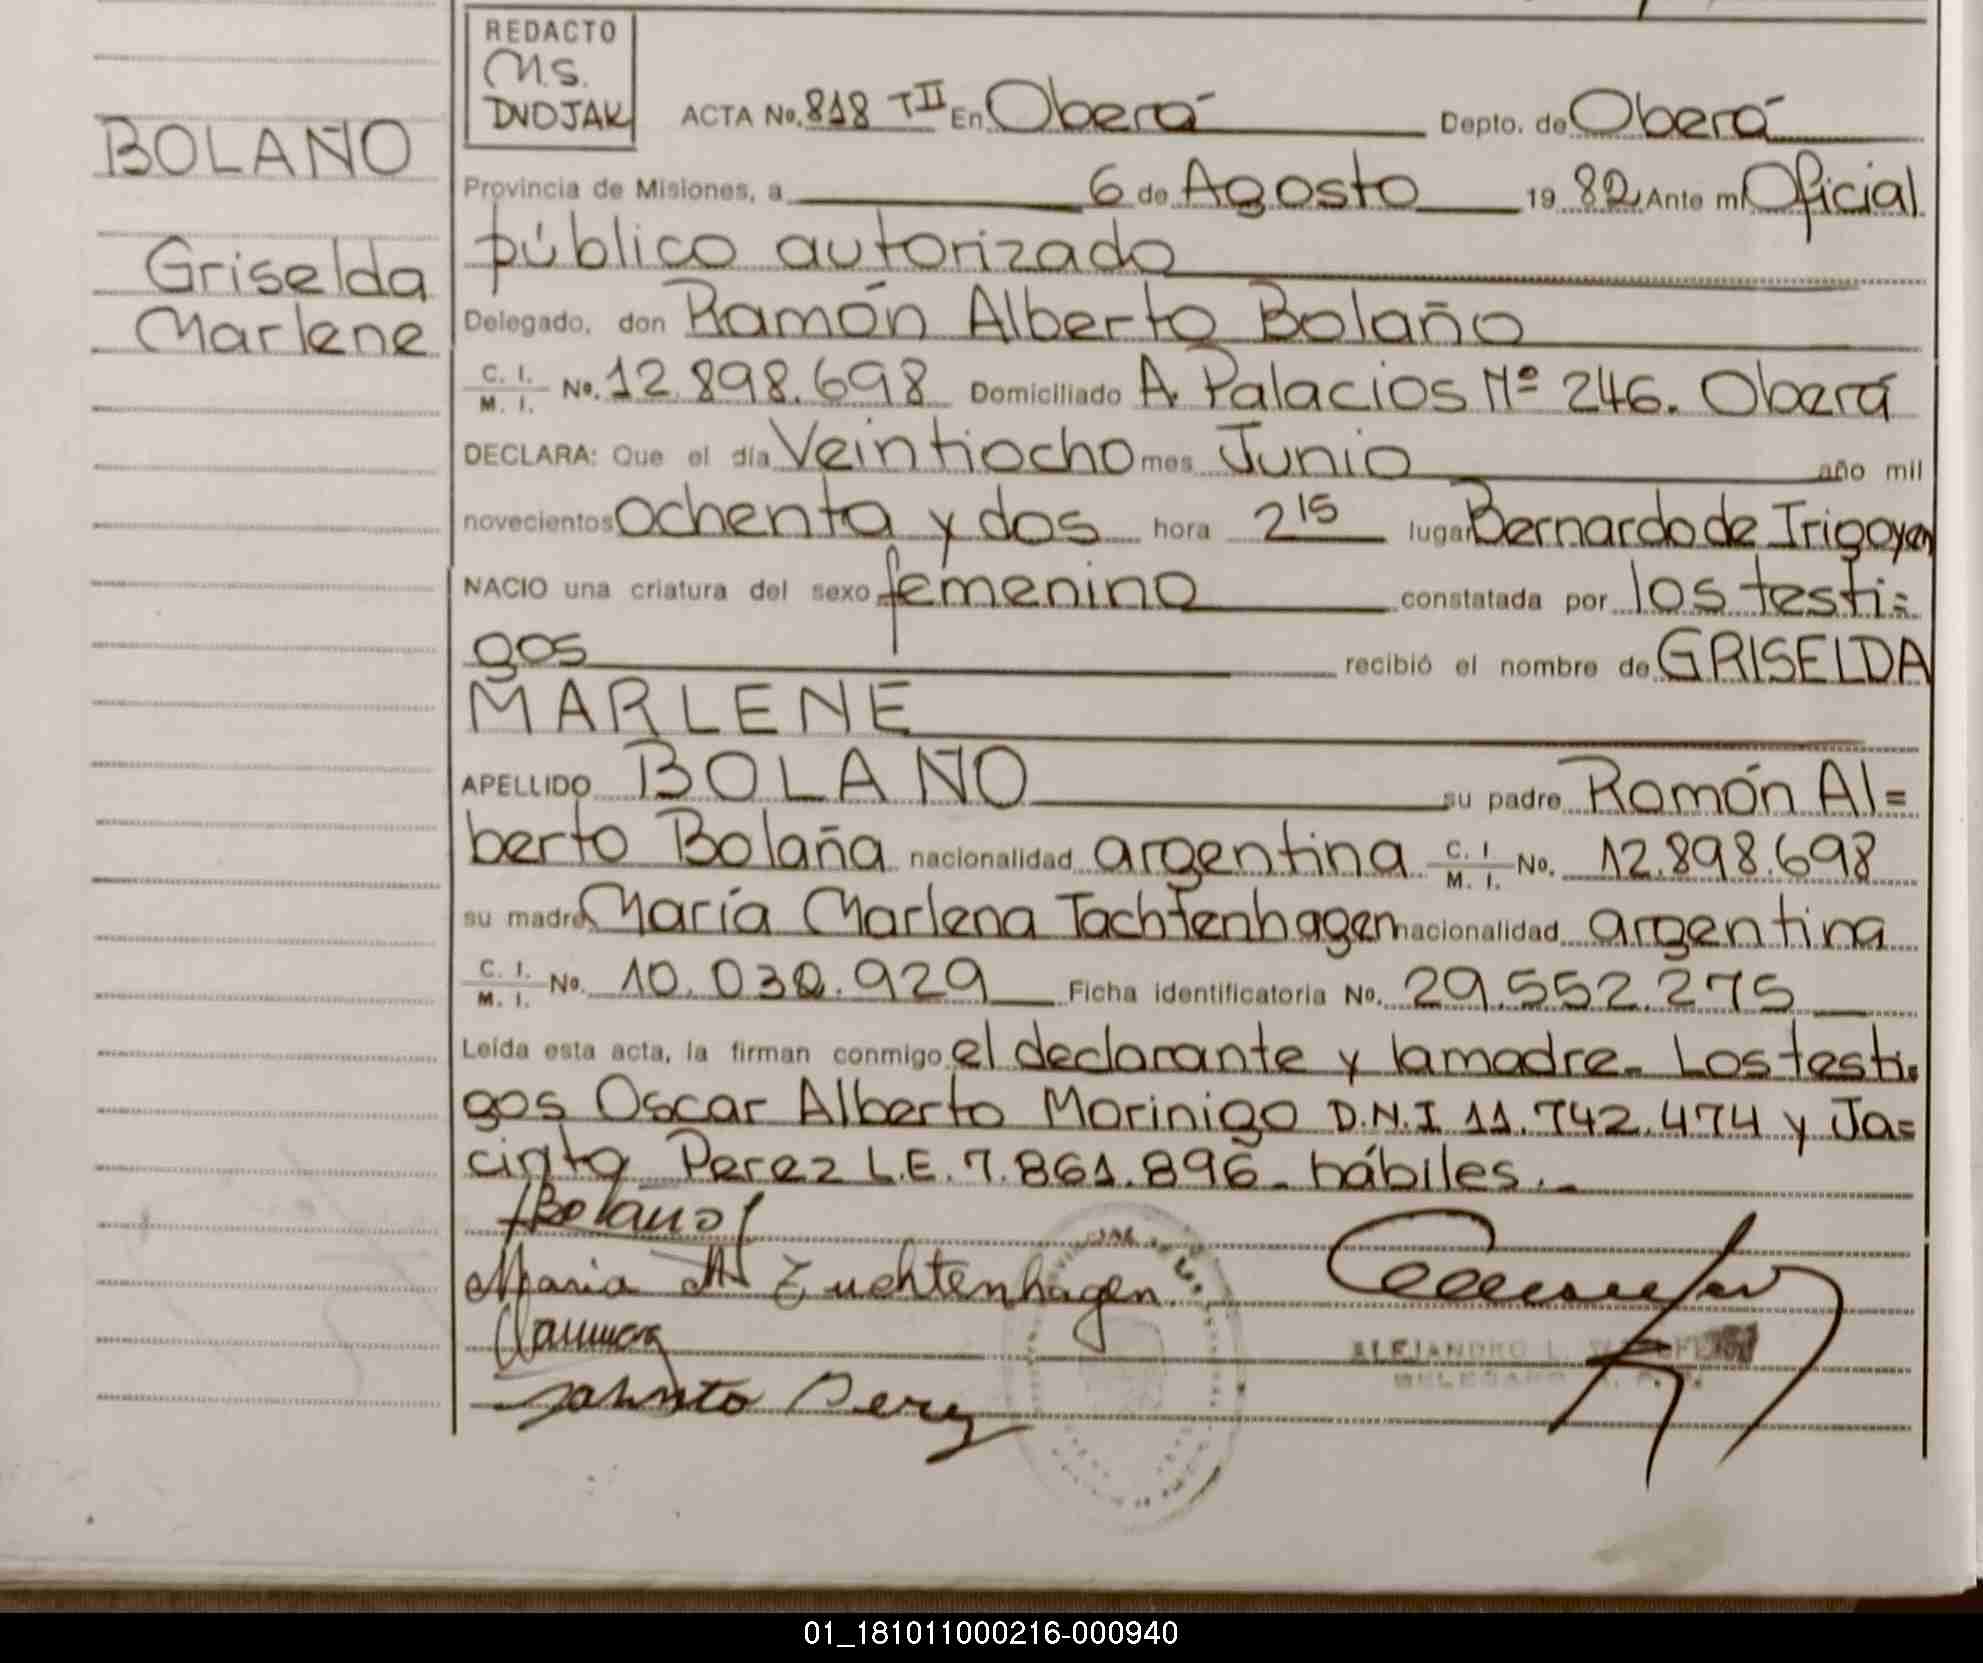 REDACTO
M.S.
DVOJAK
ACTA No. 818 TII En Oberá Depto. de Oberá
BOLAÑO
Provincia de Misiones, a 6 de Agosto 1982 Ante mí Oficial
público autorizado
Griselda
Marlene
Delegado, don Ramón Alberto Bolaño
C. I. M. I. No. 12.898.698 Domiciliado A. Palacios Nº 246. Oberá
DECLARA: Que el día Veintiocho mes Junio año mil
novecientos ochenta y dos hora 2 15 lugar Bernardo de Irigoyen
NACIO una criatura del sexo femenino constatada por los testi=
gos recibió el nombre de GRISELDA
MARLENE
APELLIDO BOLAÑO su padre Ramón Al=
berto Bolaña nacionalidad argentina C. I. M. I. No. 12.898.698
su madre María Marlena Tachtenhagen nacionalidad argentina
C. I. M. I. No. 10.030.929 Ficha identificatoria No. 29.552.275
Leída esta acta, la firman conmigo el declarante y la madre. Los testi=
gos Oscar Alberto Morinigo D.N.I 11.742.474 y Ja=
cinto Perez L.E. 7.861.896 hábiles.
Bolaño
Maria M Tuchtenhagen
Jacinto Perez
ALEJANDRO L.
DELEGADO
01_181011000216-000940